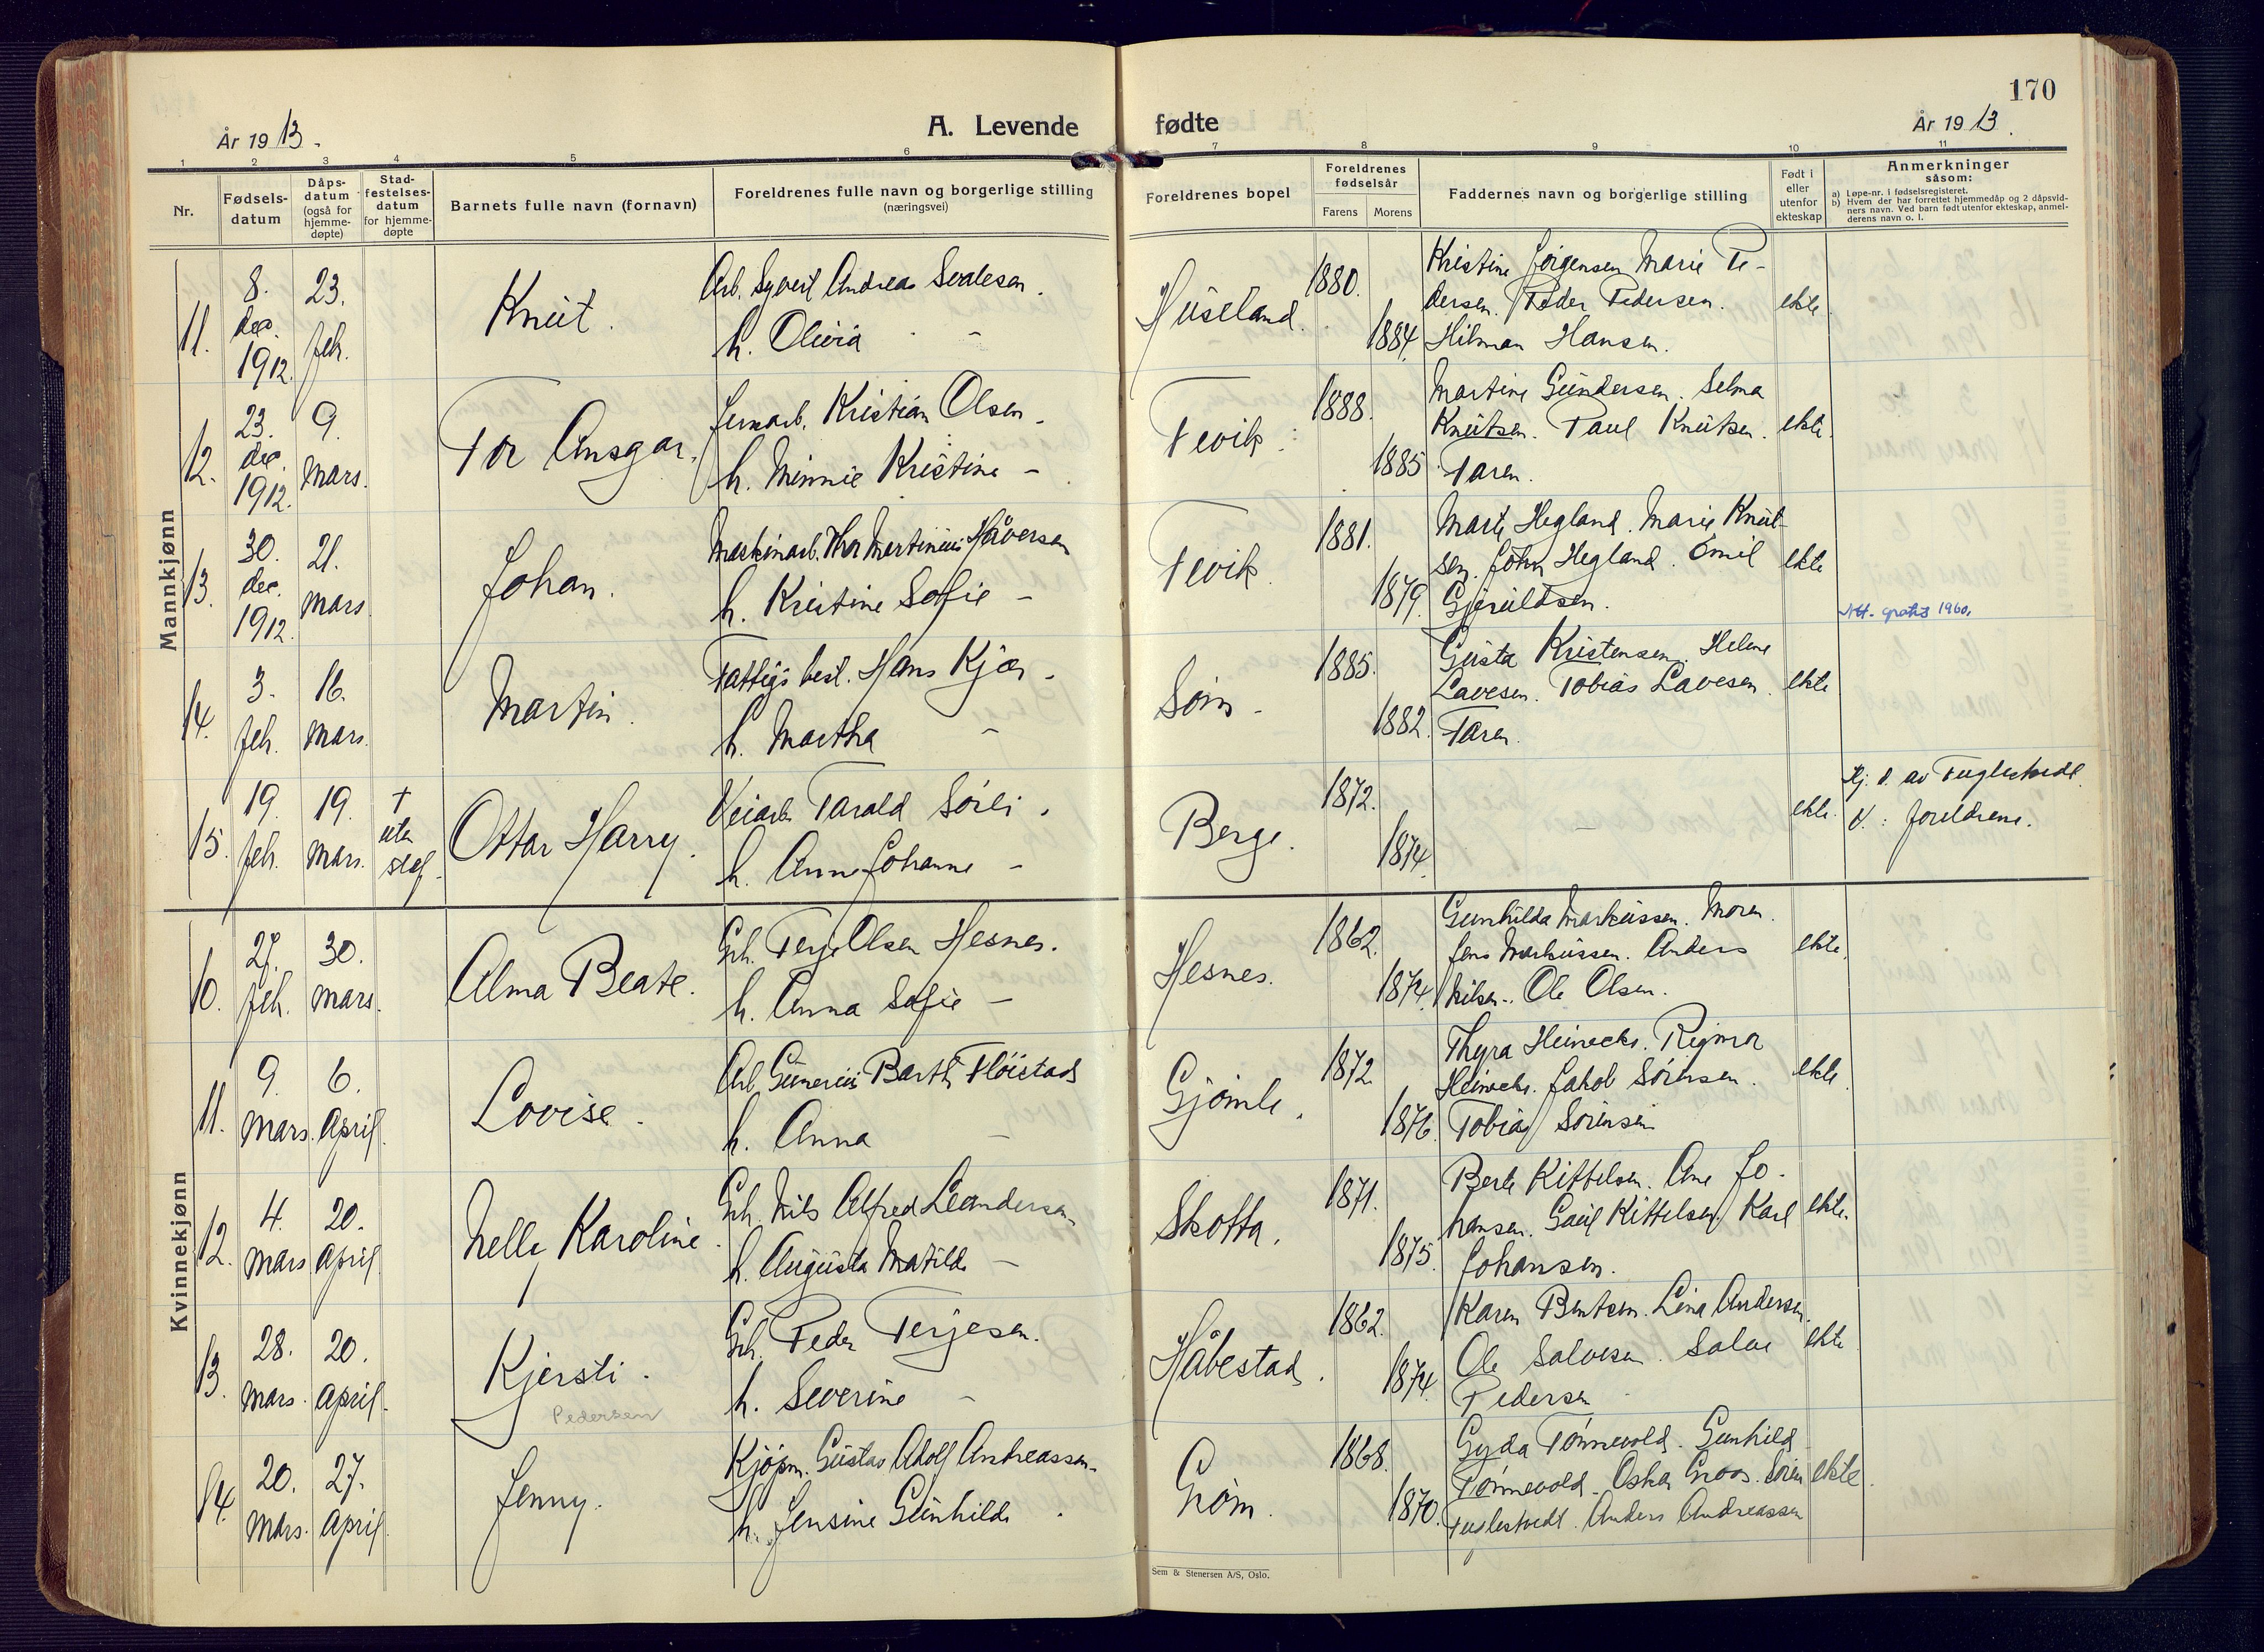 170
År 1913.
A. Levende
fødte
År 1913.
1 2 3 4 5 6 7 8 9 10 11
Nr.
Fødsels-
datum
Dåps-
datum
(også for
hjemme-
døpte)
Stad-
festelses-
datum
for hjemme-
døpte
Barnets fulle navn (fornavn)
Foreldrenes fulle navn og borgerlige stilling
(næringsvei)
Foreldrenes bopel
Foreldrenes
fødselsår
Farens
Morens
Faddernes navn og borgerlige stilling
Født i
eller
utenfor
ekteskap
Anmerkninger
såsom:
a) Løpe-nr. i fødselsregisteret.
b) Hvem der har forrettet hjemmedåp og 2 dåpsvid-
ners navn. Ved barn født utenfor ekteskap, anmel-
derens navn o. l.
Mannkjønn
11.
8.
dec.
1912.
23.
feb.
Knut.
Arb. Syvert Andreas Svalesen.
h. Olivia -
Huseland.
1880.
1884.
Kristine Jörgensen Marie Pe-
dersen. Peder Pedersen.
Hilman Hansen.
ekte
12.
23.
dec.
1912.
9.
mars.
Tor Ansgar.
Jernarb. Kristian Olsen.
h. Minnie Kristine -
Fevik.
1888.
1885
Martine Gundersen. Selma
Knutsen. Paul Knutsen.
Faren.
ekte.
13.
30.
dec.
1912.
21.
mars
Johan.
Maskinarb. Thor Martinius Håversen
h. Kristine Sofie -
Fevik.
1881.
1879.
Marte Hegland. Marie Knut-
sen. John Hegland. Emil
Gjeruldsen.
ekte
Att. gratis 1960.
14.
3.
feb.
16.
mars.
Martin.
Fattigs best. Hans Kjær.
h. Martha -
Söm -
1885.
1882.
Gusta Kristensen. Helene
Lavesen. Tobias Lavesen.
Faren.
ekte
15.
19.
feb.
19.
mars.
†
uten
staf.
Ottar Harry.
Veiarb. Tarald Sörli.
h. Anne Johanne -
Berge.
1872.
1874.
ekte.
Hj. d. av Fuglestvedt
V.: foreldrene.
Kvinnekjønn
10.
27.
feb.
30.
mars.
Alma Beate.
Grb. Terje Olsen Hesnes.
h. Anna Sofie -
Hesnes.
1862.
1874.
Gunhilda Markussen. Moren.
Jens Markussen. Anders
Nilsen. Ole Olsen.
ekte.
11.
9.
mars.
6.
April.
Lovise.
Arb. Gunerius Barth Flöistad
h. Anna -
Gjömle.
1872
1876.
Thyra Heinecke. Rigmor
Heinecke. Jakob Sörensen.
Tobias Sörensen
ekte.
12.
4.
mars
20.
April
Nelly Karoline.
Grb. Nils Alfred Leandersen.
h. Augusta Matilde -
Skotta.
1871.
1875.
Berte Kittelsen. Ane Jo-
hansen. Kittelsen. Karl
Johansen.
ekte.
13.
28.
mars.
20.
April.
Kjersti.
Pedersen
Grb. Peder Terjesen.
h. Severine -
Håbestad.
1862.
1874.
Karen Bentsen. Lina Andersen.
Ole Salvesen. Salve
Pedersen
ekte
14.
20.
mars.
27.
April
Jenny.
Kjöpm. Gustav Adolf Andreassen.
h. Jensine Gunhilde.
Gröm.
1868.
1870.
Gyda Tønnevold. Gunhild
Tønnevold. Oskar Groos. Sören
Fuglestvedt. Anders Andreassen
ekte.
Sem & Stenersen A/S, Oslo.